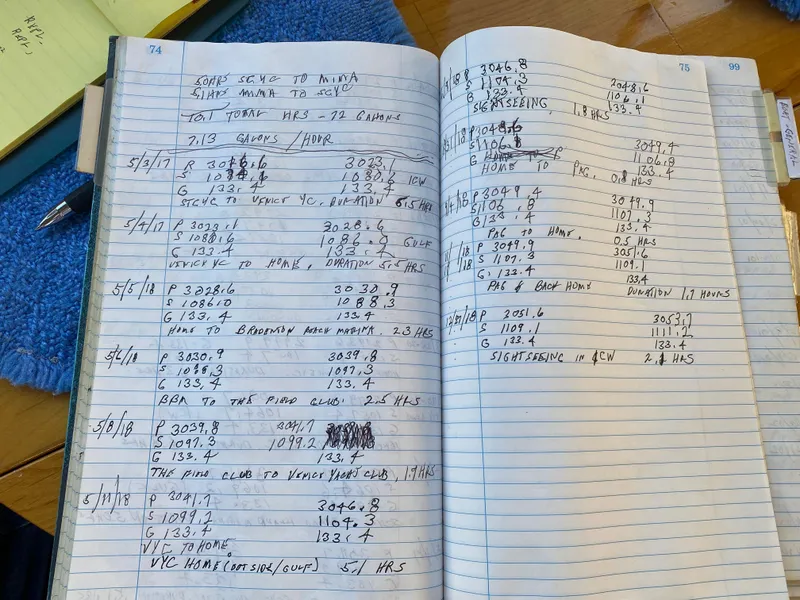 74
SGYC TO MIMA
MIMA TO SGYC
10.1 TOTAL HRS - 72 GALONS
7.13 GALONS/HOUR
5/3/17 P 3016.6 3023.1
S 1080.6 ICW
G 133.4 133.4
STGYC TO VENICE YC. DURATION 6.5 HRS
5/4/17 P 3023.1 3028.6
S 1080.6 1086.0 GULF
G 133.4 133.4
VENICE YC TO HOME, DURATION 5.5 HRS
5/5/18 P 3028.6 3030.9
S 1086.0 1088.3
G 133.4 133.4
HOME TO BRADENTON BEACH MARINA. 2.3 HRS
5/6/18 P 3030.9 3039.8
S 1097.3
G 133.4 133.4
BBM TO THE FIELD CLUB. 2.5 HRS
5/8/18 P 3039.8 3041.7
S 1097.3 1099.2
G 133.4 133.4
THE FIELD CLUB TO VENICE YACHT CLUB, 1.9 HRS
5/11/18 P 3041.7 3046.8
S 1099.2 1104.3
G 133.4 133.4
VYC TO HOME.
VYC HOME (OUTSIDE/GULF) 5.1 HRS
75
P 3046.8 3048.6
S 1104.3 1106.1
G 133.4 133.4
SIGHTSEEING 1.8 HRS
P 3048.6 3049.4
S 1106.1 1106.8
G 133.4
HOME TO PAG. 0.8 HRS
P 3049.4 3049.9
S 1106.8 1107.3
G 133.4 133.4
PAG TO HOME. 0.5 HRS
P 3049.9 3051.6
S 1107.3 1109.1
G. 133.4 133.4
PAG & BACK HOME DURATION 1.7 HOURS
P 3051.6 3053.7
S 1109.1 1111.2
G 133.4 133.4
SIGHTSEEING IN ICW 2.1 HRS
99